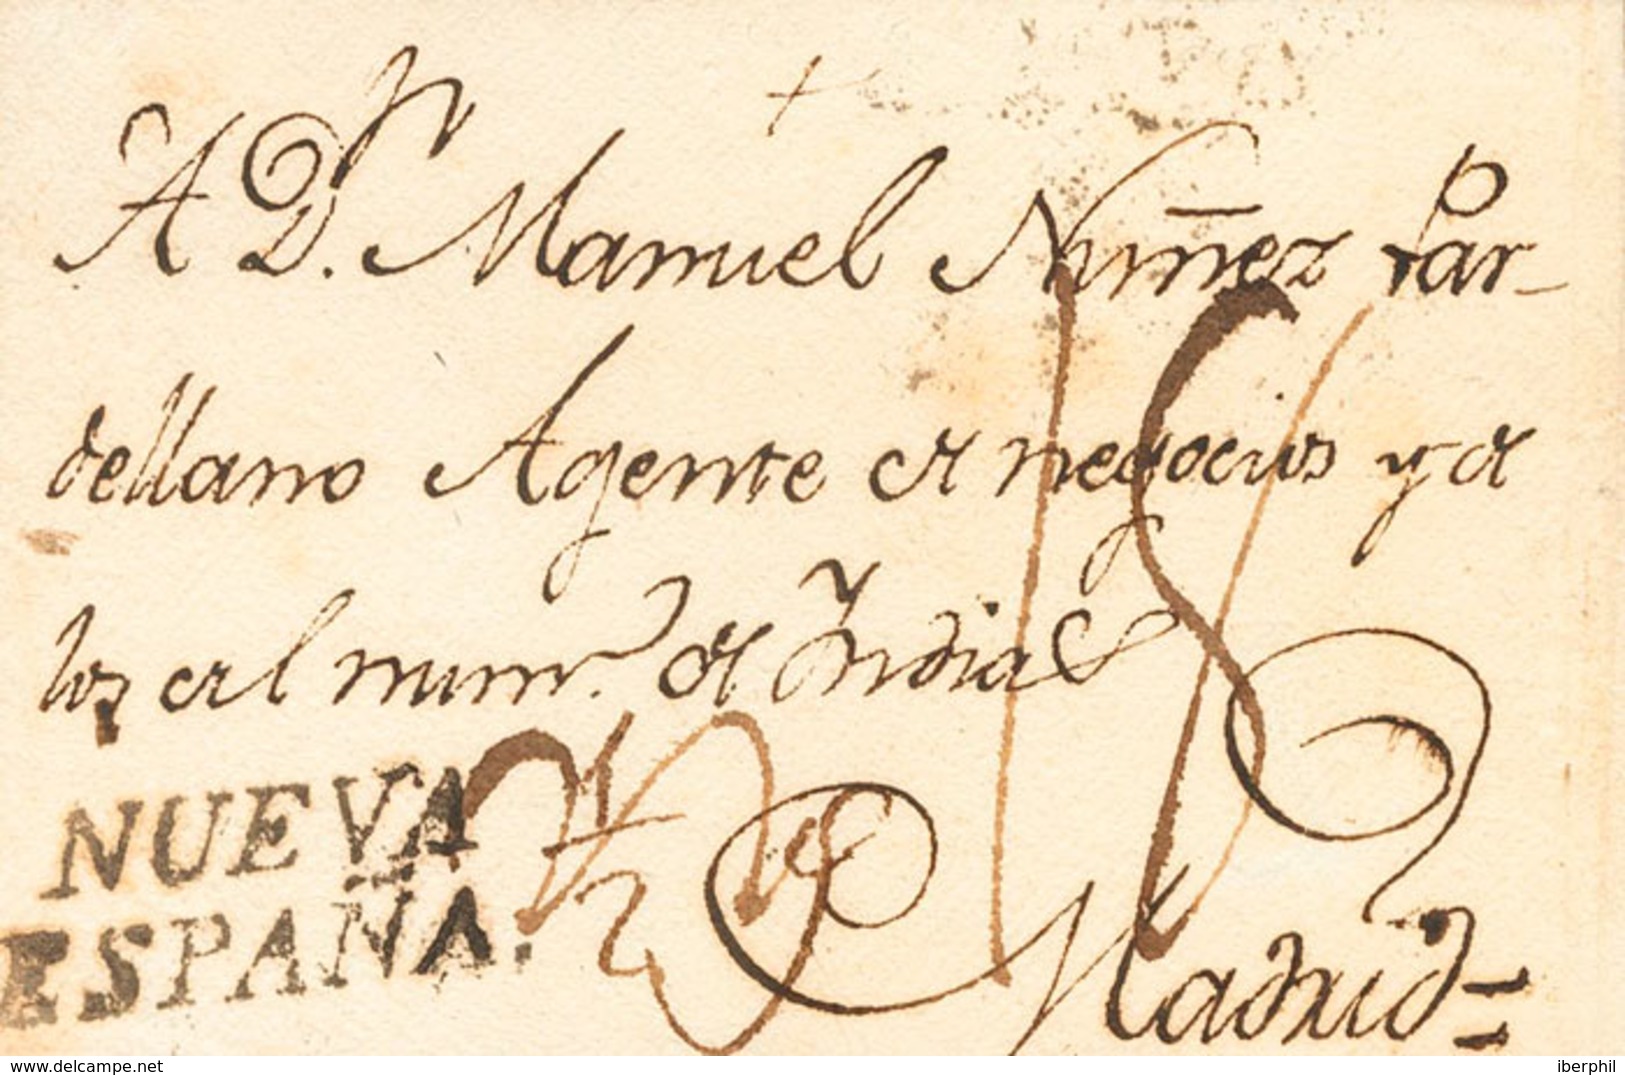 A Dn. Manuel Nuñez Par-
dellano Agente de negocios y de
los del num.o de Indias
NUEVA
ESPAÑA.
Madrid=
www.delcampe.net
iberphil